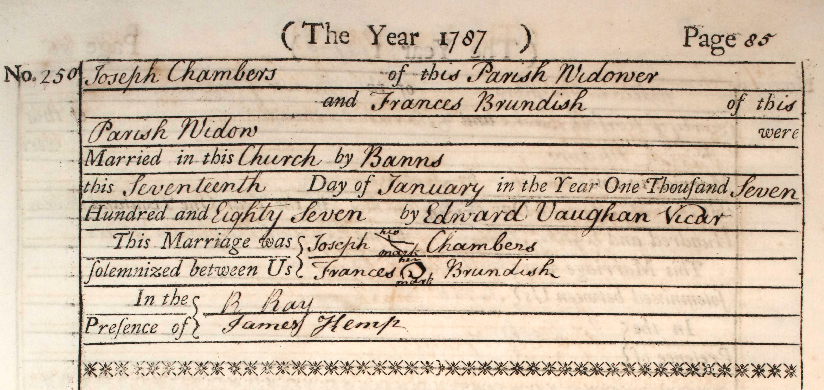 ( The Year 1787 ) Page 85
No. 250 Joseph Chambers of this Parish Widower
and Frances Brundish of this
Parish Widow were
Married in this Church by Banns
this Seventeenth Day of January in the Year One Thousand Seven
Hundred and Eighty Seven by Edward Vaughan Vicar
This Marriage was { Joseph his mark Chambers
ſolemnized between Us { Frances her mark Brundish
In the { R Ray
Preſence of { James Hemp